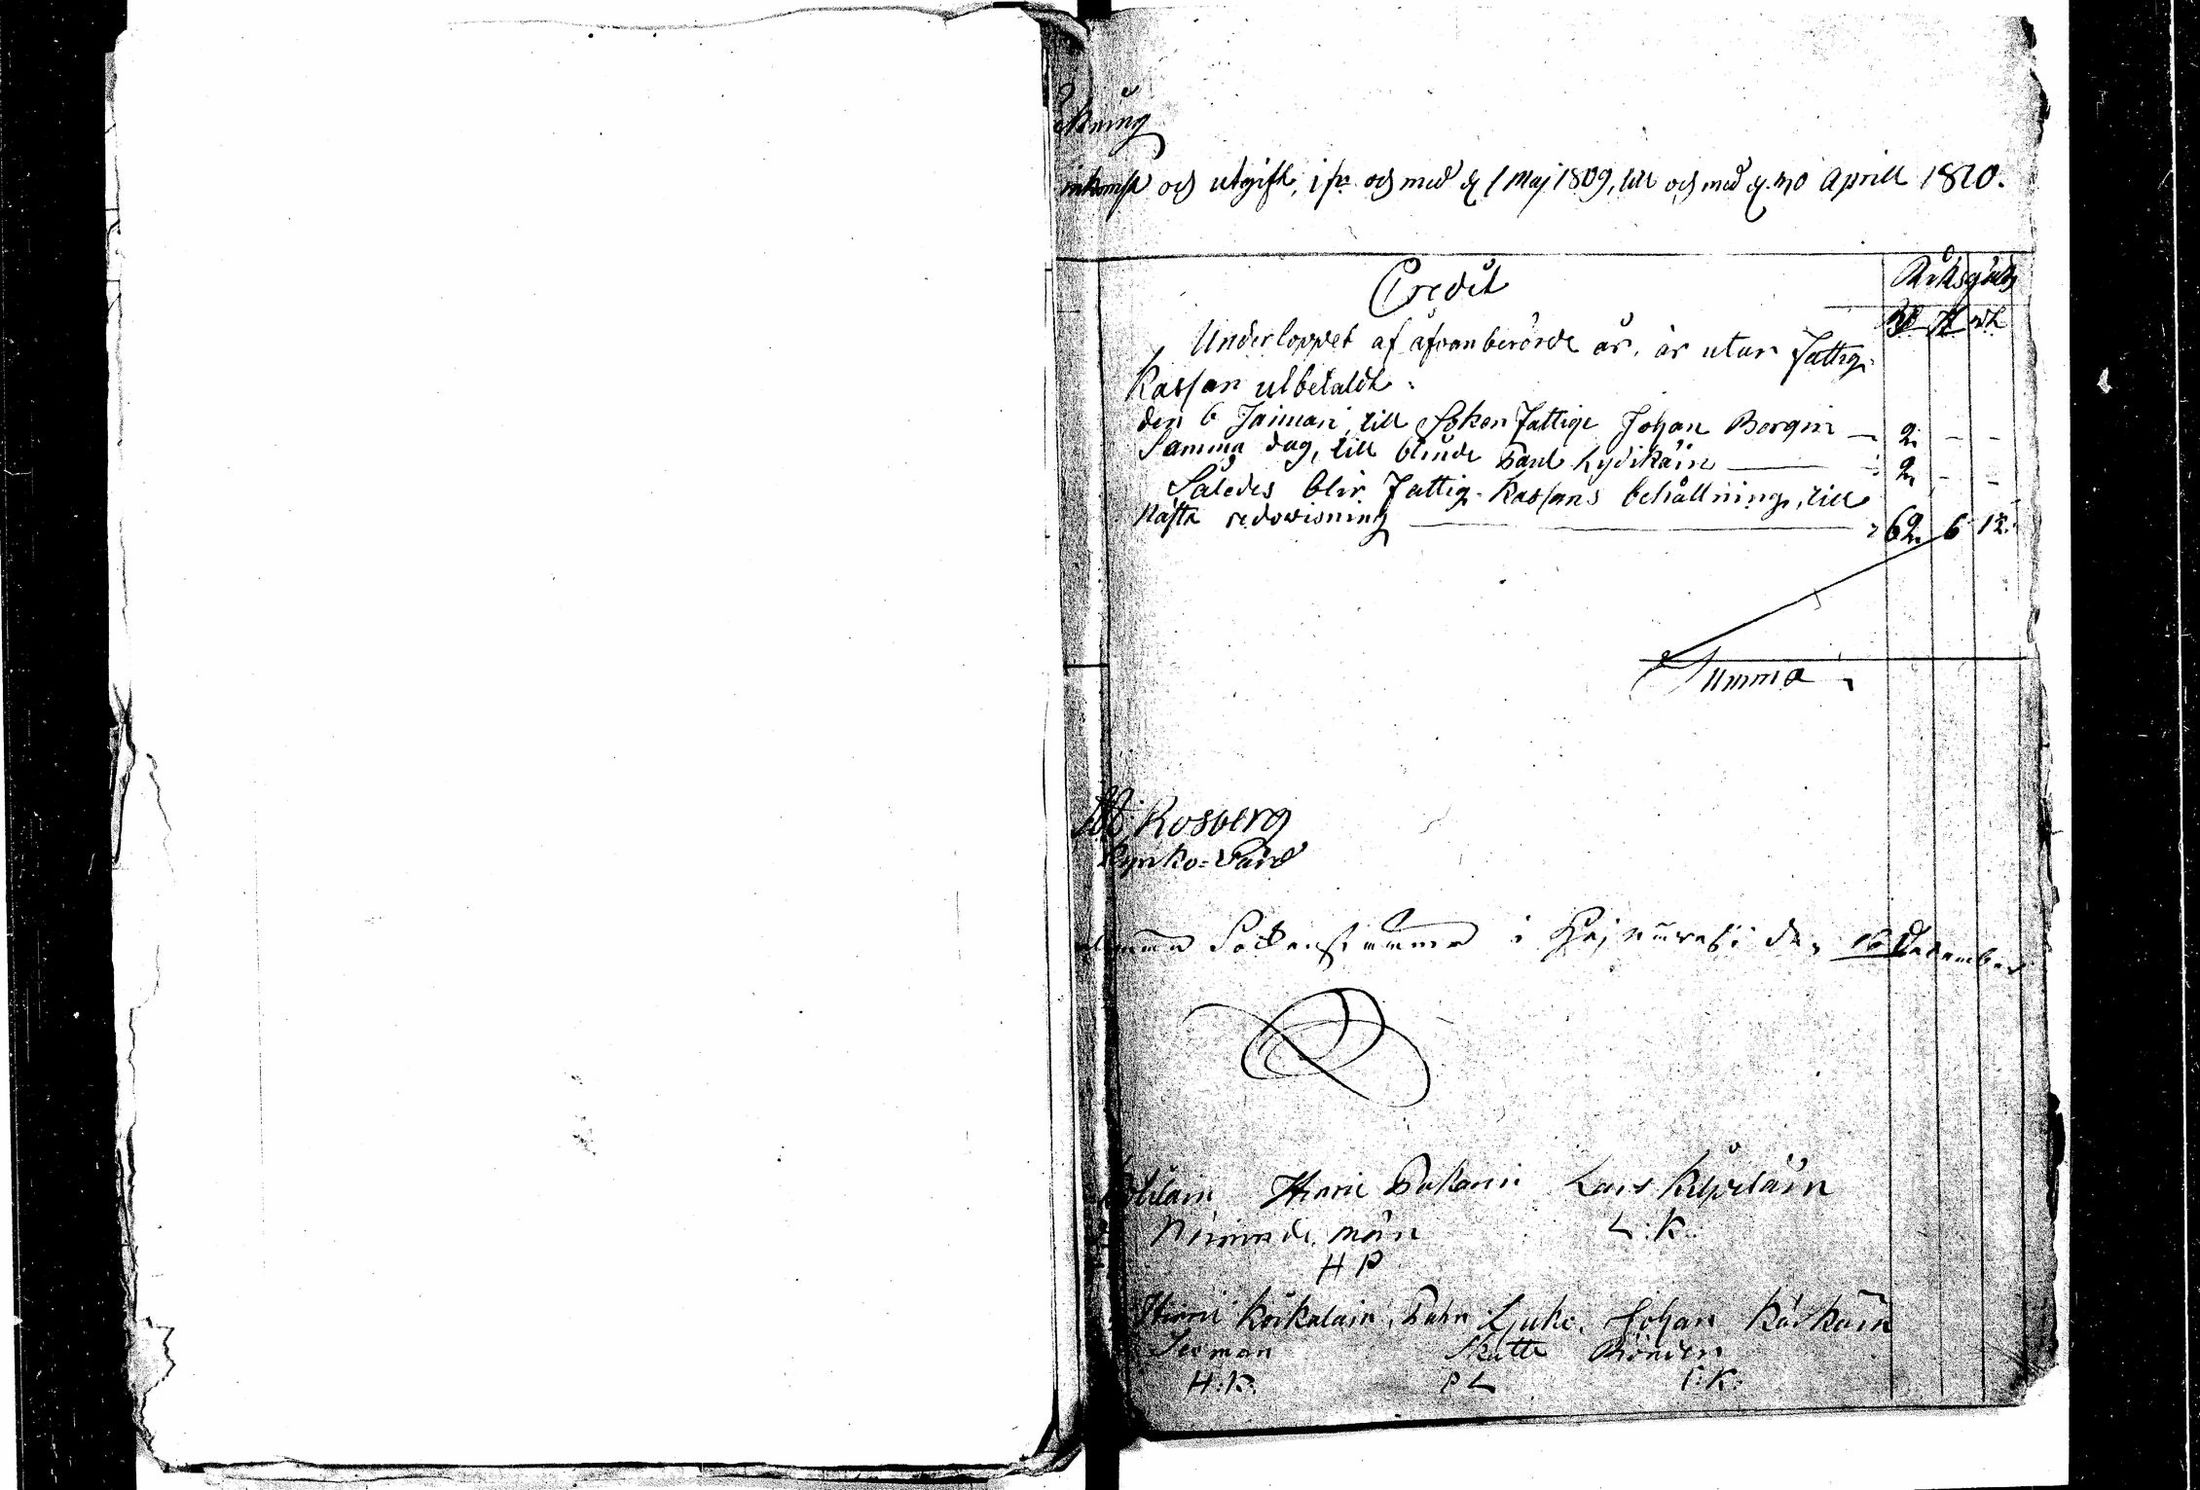 kning
inkomst och utgift, ifr. och med d. 1 Maj 1809, till och med d. 30 Aprill 1810.
Credit
Riksgäld
Rd ß rst
Underloppet af åfvanberörde år, är utur Fattig-
Kassan utbetaldt:
den 6 Januari, till Soken Fattige Johan Borgm 2 - -
Samma dag, till blinde Paul Lydikäin 2 - -
Således blir Fattig-Kassans behållning, till
Nästa redovisning 62 6 12
Summa
Rosberg
Kyrko-Värd
Sockenstämma i den 16 December
Henric Pakarin Lars Kilpeläin
Nämndemän L: K:
H P
Henric Koikalain, Petr Ljuko, Johan Kärkäin
Sexman Skatte Bönder
H: K: P L I: K: